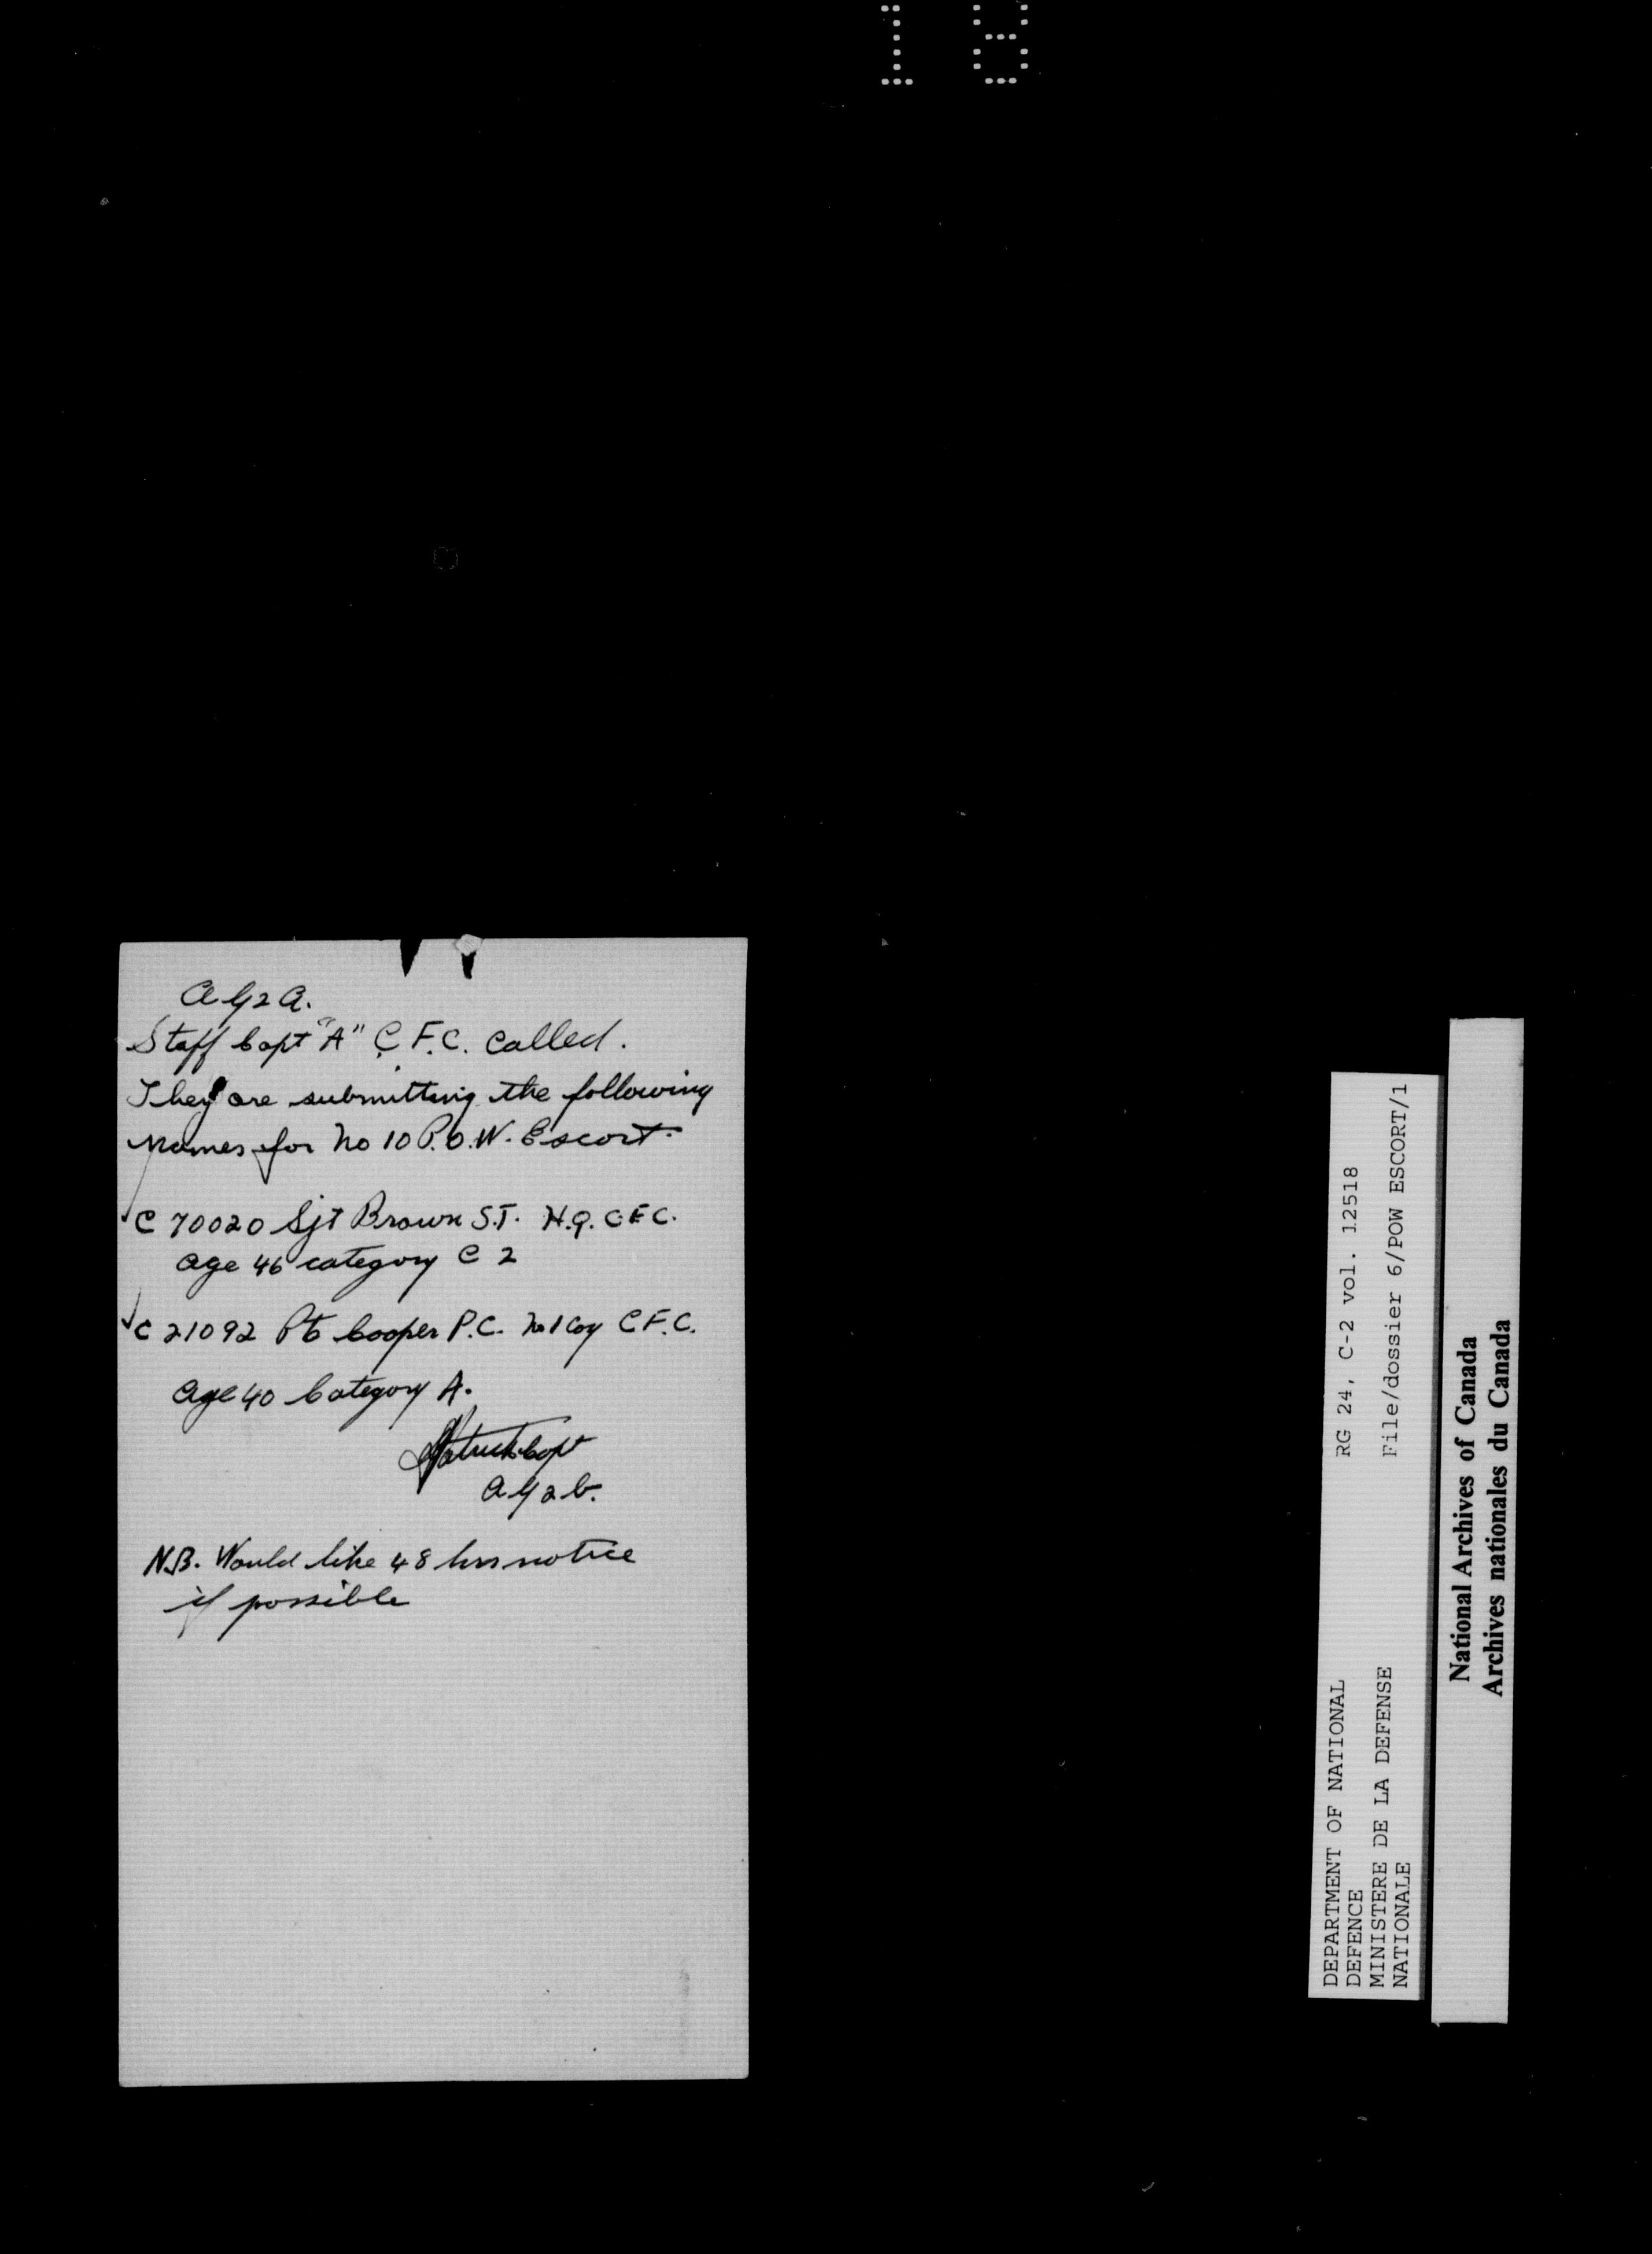 AG2A.
Staff Capt "A" C.F.C. called.
They are submitting the following
names for No 10 P.O.W. Escort.
C 70020 Sjt Brown S.T. H.Q. C.F.C.
age 46 category C 2
C 21092 Pte Cooper P.C. No 1 Coy C.F.C.
Age 40 Category A.
Capt
AG2b.
N.B. Would like 48 hrs notice
if possible
DEPARTMENT OF NATIONAL
DEFENCE
MINISTERE DE LA DEFENSE
NATIONALE
RG 24, C-2 vol. 12518
File/dossier 6/POW ESCORT/1
National Archives of Canada
Archives nationales du Canada